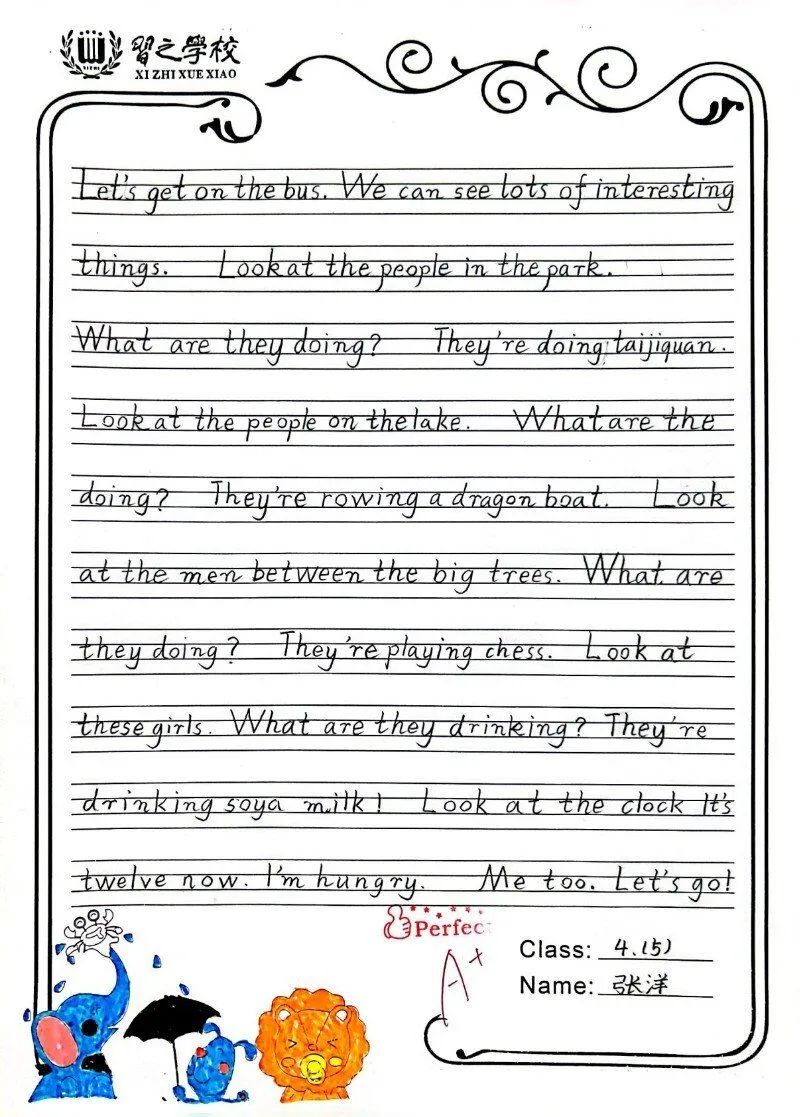 習之學校
XIZHI
XI ZHI XUE XIAO
Let's get on the bus. We can see lots of interesting
things. Look at the people in the park.
What are they doing? They're doing taijiquan.
Look at the people on the lake. What are the
doing? They're rowing a dragon boat. Look
at the men between the big trees. What are
they doing? They're playing chess. Look at
these girls. What are they drinking? They're
drinking soya milk! Look at the clock It's
twelve now. I'm hungry. Me too. Let's go!
Perfect
A+
Class: 4.(5)
Name: 张洋